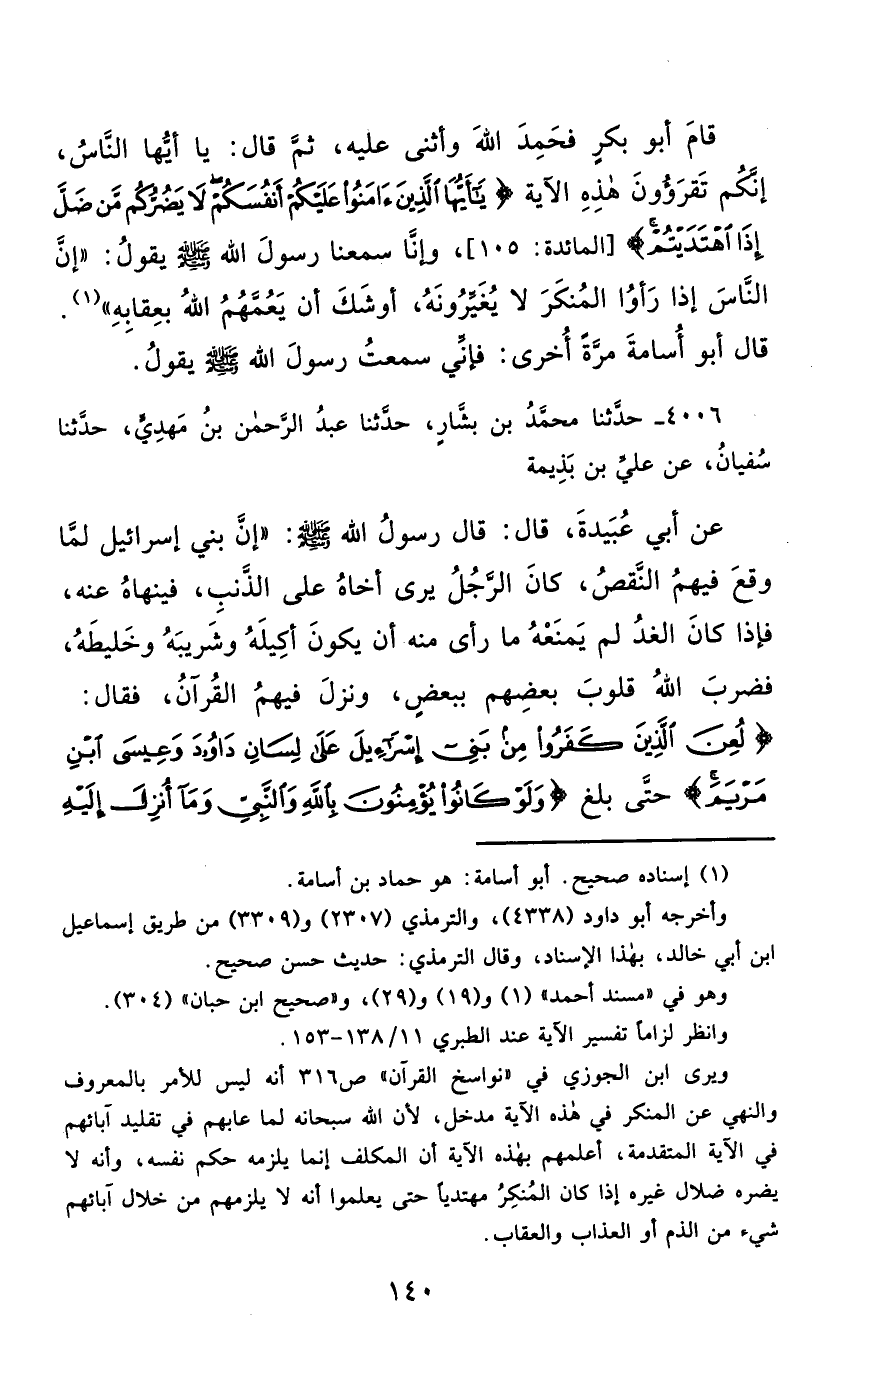 قامَ أبو بكرٍ فحَمِدَ اللهَ وأثنى عليه، ثمَّ قال: يا أيُّها النَّاسُ،
إنَّكُم تَقرَؤُونَ هٰذِهِ الآية ﴿ يَٰٓأَيُّهَا ٱلَّذِينَ ءَامَنُوا۟ عَلَيْكُمْ أَنفُسَكُمْ ۖ لَا يَضُرُّكُم مَّن ضَلَّ
إِذَا ٱهْتَدَيْتُمْ ۚ ﴾ [المائدة: ١٠٥]، وإنَّا سمعنا رسولَ الله ﷺ يقولُ: «إنَّ
النَّاسَ إذا رَأوُا المُنكَرَ لا يُغَيِّرُونَهُ، أوشَكَ أن يَعُمَّهُمُ اللهُ بعِقابِهِ»(١).
قال أبو أُسامةَ مرَّةً أُخرى: فإنِّي سمعتُ رسولَ الله ﷺ يقولُ.
٤٠٠٦ـ حدَّثنا محمَّدُ بن بشَّارٍ، حدَّثنا عبدُ الرَّحمٰن بنُ مَهدِيٍّ، حدَّثنا
سُفيانُ، عن عليِّ بن بَذِيمة
عن أبي عُبَيدةَ، قال: قال رسولُ الله ﷺ: «إنَّ بني إسرائيل لمَّا
وقعَ فيهمُ النَّقصُ، كانَ الرَّجُلُ يرى أخاهُ على الذَّنبِ، فينهاهُ عنه،
فإذا كانَ الغدُ لم يَمنَعْهُ ما رأى منه أن يكونَ أكِيلَهُ وشَرِيبَهُ وخَليطَهُ،
فضربَ اللهُ قلوبَ بعضِهم ببعضٍ، ونزلَ فيهمُ القُرآنُ، فقال:
﴿ لُعِنَ ٱلَّذِينَ كَفَرُوا۟ مِنۢ بَنِىٓ إِسْرَٰٓءِيلَ عَلَىٰ لِسَانِ دَاوُۥدَ وَعِيسَى ٱبْنِ
مَرْيَمَ ۚ ﴾ حتَّى بلغ ﴿ وَلَوْ كَانُوا۟ يُؤْمِنُونَ بِٱللَّهِ وَٱلنَّبِىِّ وَمَآ أُنزِلَ إِلَيْهِ
(١) إسناده صحيح. أبو أسامة: هو حماد بن أسامة.
وأخرجه أبو داود (٤٣٣٨)، والترمذي (٢٣٠٧) و(٣٣٠٩) من طريق إسماعيل
ابن أبي خالد، بهٰذا الإسناد، وقال الترمذي: حديث حسن صحيح.
وهو في «مسند أحمد» (١) و(١٩) و(٢٩)، و«صحيح ابن حبان» (٣٠٤).
وانظر لزاماً تفسير الآية عند الطبري ١١/ ١٣٨-١٥٣.
ويرى ابن الجوزي في «نواسخ القرآن» ص٣١٦ أنه ليس للأمر بالمعروف
والنهي عن المنكر في هٰذه الآية مدخل، لأن الله سبحانه لما عابهم في تقليد آبائهم
في الآية المتقدمة، أعلمهم بهٰذه الآية أن المكلف إنما يلزمه حكم نفسه، وأنه لا
يضره ضلال غيره إذا كان المُنكِرُ مهتدياً حتى يعلموا أنه لا يلزمهم من خلال آبائهم
شيء من الذم أو العذاب والعقاب.
١٤٠